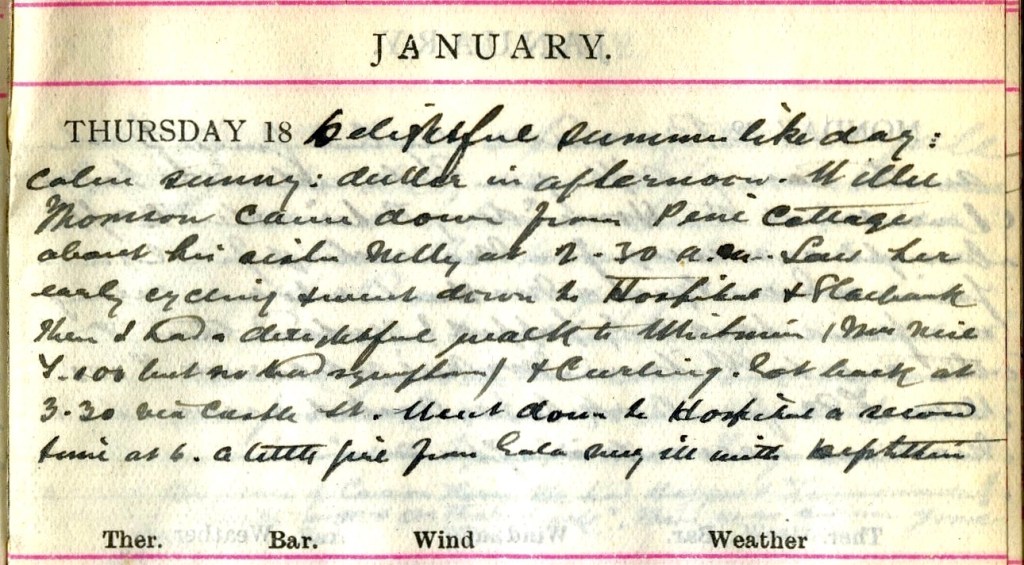 JANUARY.
THURSDAY 18 Delightful summer like day:
Calm sunny: duller in afternoon. Willie
Thomson came down from Peel Cottage
about his sister Nelly at 7.30 a.m. Saw her
early cycling & went down to Hospital &
Then I had a delightful walk to (Mrs
T.100 but no bad symptom) & Curling. Got back at
3.30 via Castle St. Went down to Hospital a second
time at 6. A little girl from Gala very ill with Diphtheria
Ther. Bar. Wind Weather